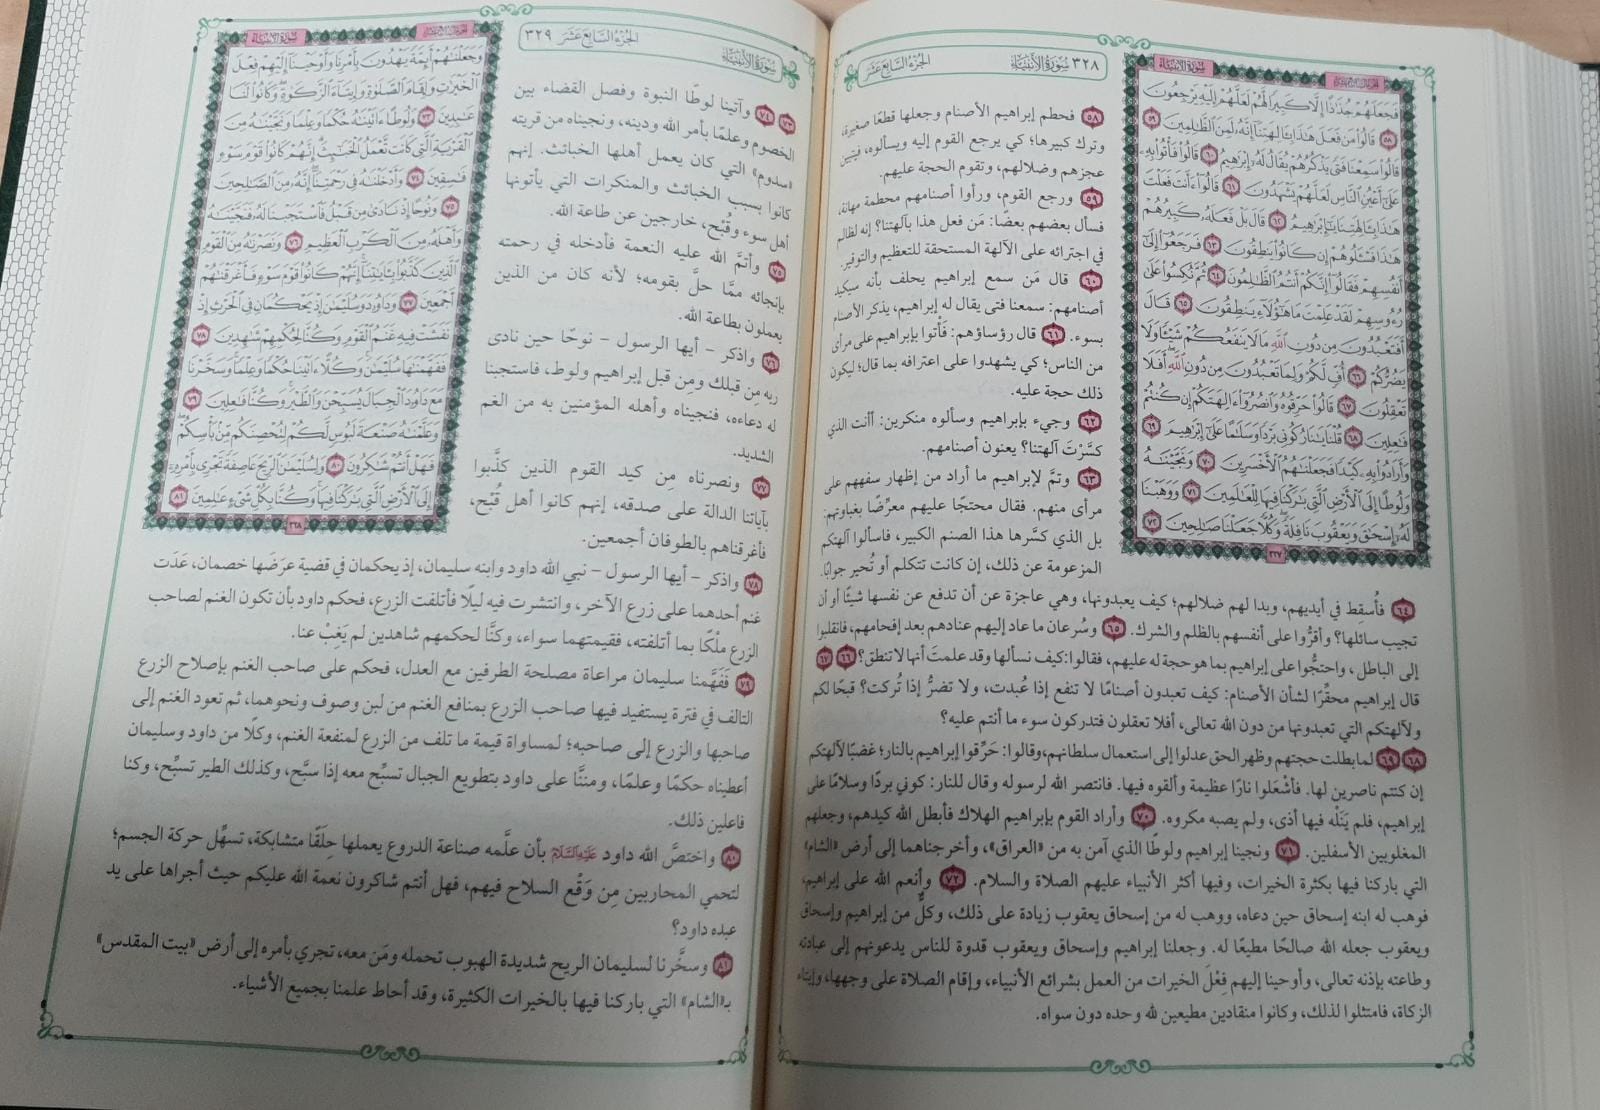 ٣٢٨ سُورَةُ الأَنبِيَاءِ الجُزْءُ السَّابِعَ عَشَرَ
سُورَةُ الأَنبِيَاءِ
فَجَعَلَهُمْ جُذَٰذًا إِلَّا كَبِيرًا لَّهُمْ لَعَلَّهُمْ إِلَيْهِ يَرْجِعُونَ
٥٨ قَالُوا۟ مَن فَعَلَ هَٰذَا بِـَٔالِهَتِنَآ إِنَّهُۥ لَمِنَ ٱلظَّٰلِمِينَ ٥٩
قَالُوا۟ سَمِعْنَا فَتًى يَذْكُرُهُمْ يُقَالُ لَهُۥٓ إِبْرَٰهِيمُ ٦٠ قَالُوا۟ فَأْتُوا۟ بِهِۦ
عَلَىٰٓ أَعْيُنِ ٱلنَّاسِ لَعَلَّهُمْ يَشْهَدُونَ ٦١ قَالُوٓا۟ ءَأَنتَ فَعَلْتَ
هَٰذَا بِـَٔالِهَتِنَا يَٰٓإِبْرَٰهِيمُ ٦٢ قَالَ بَلْ فَعَلَهُۥ كَبِيرُهُمْ
هَٰذَا فَسْـَٔلُوهُمْ إِن كَانُوا۟ يَنطِقُونَ ٦٣ فَرَجَعُوٓا۟ إِلَىٰٓ
أَنفُسِهِمْ فَقَالُوٓا۟ إِنَّكُمْ أَنتُمُ ٱلظَّٰلِمُونَ ٦٤ ثُمَّ نُكِسُوا۟ عَلَىٰ
رُءُوسِهِمْ لَقَدْ عَلِمْتَ مَا هَٰٓؤُلَآءِ يَنطِقُونَ ٦٥ قَالَ
أَفَتَعْبُدُونَ مِن دُونِ ٱللَّهِ مَا لَا يَنفَعُكُمْ شَيْـًٔا وَلَا
يَضُرُّكُمْ ٦٦ أُفٍّ لَّكُمْ وَلِمَا تَعْبُدُونَ مِن دُونِ ٱللَّهِ أَفَلَا
تَعْقِلُونَ ٦٧ قَالُوا۟ حَرِّقُوهُ وَٱنصُرُوٓا۟ ءَالِهَتَكُمْ إِن كُنتُمْ
فَٰعِلِينَ ٦٨ قُلْنَا يَٰنَارُ كُونِى بَرْدًا وَسَلَٰمًا عَلَىٰٓ إِبْرَٰهِيمَ ٦٩
وَأَرَادُوا۟ بِهِۦ كَيْدًا فَجَعَلْنَٰهُمُ ٱلْأَخْسَرِينَ ٧٠ وَنَجَّيْنَٰهُ
وَلُوطًا إِلَى ٱلْأَرْضِ ٱلَّتِى بَٰرَكْنَا فِيهَا لِلْعَٰلَمِينَ ٧١ وَوَهَبْنَا
لَهُۥٓ إِسْحَٰقَ وَيَعْقُوبَ نَافِلَةً وَكُلًّا جَعَلْنَا صَٰلِحِينَ ٧٢
٣٢٧
٥٨ فحطم إبراهيم الأصنام وجعلها قطعًا صغيرة،
وترك كبيرها؛ كي يرجع القوم إليه ويسألوه، فيتبين
عجزهم وضلالهم، وتقوم الحجة عليهم.
٥٩ ورجع القوم، ورأوا أصنامهم محطمة مهانة،
فسأل بعضهم بعضًا: مَن فعل هذا بآلهتنا؟ إنه لظالم
في اجترائه على الآلهة المستحقة للتعظيم والتوقير.
٦٠ قال مَن سمع إبراهيم يحلف بأنه سيكيد
أصنامهم: سمعنا فتى يقال له إبراهيم، يذكر الأصنام
بسوء. ٦١ قال رؤساؤهم: فأْتوا بإبراهيم على مرأى
من الناس؛ كي يشهدوا على اعترافه بما قال؛ ليكون
ذلك حجة عليه.
٦٢ وجيء بإبراهيم وسألوه منكرين: أأنت الذي
كسَّرْتَ آلهتنا؟ يعنون أصنامهم.
٦٣ وتمَّ لإبراهيم ما أراد من إظهار سفههم على
مرأى منهم. فقال محتجًا عليهم معرِّضًا بغباوتهم:
بل الذي كسَّرها هذا الصنم الكبير، فاسألوا آلهتكم
المزعومة عن ذلك، إن كانت تتكلم أو تُحير جوابًا.
٦٤ فأُسقِط في أيديهم، وبدا لهم ضلالهم؛ كيف يعبدونها، وهي عاجزة عن أن تدفع عن نفسها شيئًا أو أن
تجيب سائلها؟ وأقرُّوا على أنفسهم بالظلم والشرك. ٦٥ وسُرعان ما عاد إليهم عنادهم بعد إفحامهم، فانقلبوا
إلى الباطل، واحتجُّوا على إبراهيم بما هو حجة له عليهم، فقالوا: كيف نسألها وقد علمتَ أنها لا تنطق؟ ٦٦ ٦٧
قال إبراهيم محقِّرًا لشأن الأصنام: كيف تعبدون أصنامًا لا تنفع إذا عُبدت، ولا تضرُّ إذا تُركت؟ قبحًا لكم
ولآلهتكم التي تعبدونها من دون الله تعالى، أفلا تعقلون فتدركون سوء ما أنتم عليه؟
٦٨ ٦٩ لما بطلت حجتهم وظهر الحق عدلوا إلى استعمال سلطانهم، وقالوا: حَرِّقوا إبراهيم بالنار؛ غضبًا لآلهتكم
إن كنتم ناصرين لها. فأشْعَلوا نارًا عظيمة وألقوه فيها. فانتصر الله لرسوله وقال للنار: كوني بردًا وسلامًا على
إبراهيم، فلم يَنَلْه فيها أذى، ولم يصبه مكروه. ٧٠ وأراد القوم بإبراهيم الهلاك فأبطل الله كيدهم، وجعلهم
المغلوبين الأسفلين. ٧١ ونجينا إبراهيم ولوطًا الذي آمن به من «العراق»، وأخرجناهما إلى أرض «الشام»
التي باركنا فيها بكثرة الخيرات، وفيها أكثر الأنبياء عليهم الصلاة والسلام. ٧٢ وأنعم الله على إبراهيم،
فوهب له ابنه إسحاق حين دعاه، ووهب له من إسحاق يعقوب زيادة على ذلك، وكلٌّ من إبراهيم وإسحاق
ويعقوب جعله الله صالحًا مطيعًا له. وجعلنا إبراهيم وإسحاق ويعقوب قدوة للناس يدعونهم إلى عبادته
وطاعته بإذنه تعالى، وأوحينا إليهم فِعْلَ الخيرات من العمل بشرائع الأنبياء، وإقام الصلاة على وجهها، وإيتاء
الزكاة، فامتثلوا لذلك، وكانوا منقادين مطيعين لله وحده دون سواه.
سُورَةُ الأَنبِيَاءِ الجُزْءُ السَّابِعَ عَشَرَ ٣٢٩
سُورَةُ الأَنبِيَاءِ
وَجَعَلْنَٰهُمْ أَئِمَّةً يَهْدُونَ بِأَمْرِنَا وَأَوْحَيْنَآ إِلَيْهِمْ فِعْلَ
ٱلْخَيْرَٰتِ وَإِقَامَ ٱلصَّلَوٰةِ وَإِيتَآءَ ٱلزَّكَوٰةِ وَكَانُوا۟ لَنَا
عَٰبِدِينَ ٧٣ وَلُوطًا ءَاتَيْنَٰهُ حُكْمًا وَعِلْمًا وَنَجَّيْنَٰهُ مِنَ
ٱلْقَرْيَةِ ٱلَّتِى كَانَت تَّعْمَلُ ٱلْخَبَٰٓئِثَ إِنَّهُمْ كَانُوا۟ قَوْمَ سَوْءٍ
فَٰسِقِينَ ٧٤ وَأَدْخَلْنَٰهُ فِى رَحْمَتِنَآ إِنَّهُۥ مِنَ ٱلصَّٰلِحِينَ
٧٥ وَنُوحًا إِذْ نَادَىٰ مِن قَبْلُ فَٱسْتَجَبْنَا لَهُۥ فَنَجَّيْنَٰهُ
وَأَهْلَهُۥ مِنَ ٱلْكَرْبِ ٱلْعَظِيمِ ٧٦ وَنَصَرْنَٰهُ مِنَ ٱلْقَوْمِ
ٱلَّذِينَ كَذَّبُوا۟ بِـَٔايَٰتِنَآ إِنَّهُمْ كَانُوا۟ قَوْمَ سَوْءٍ فَأَغْرَقْنَٰهُمْ
أَجْمَعِينَ ٧٧ وَدَاوُۥدَ وَسُلَيْمَٰنَ إِذْ يَحْكُمَانِ فِى ٱلْحَرْثِ إِذْ
نَفَشَتْ فِيهِ غَنَمُ ٱلْقَوْمِ وَكُنَّا لِحُكْمِهِمْ شَٰهِدِينَ ٧٨
فَفَهَّمْنَٰهَا سُلَيْمَٰنَ وَكُلًّا ءَاتَيْنَا حُكْمًا وَعِلْمًا وَسَخَّرْنَا
مَعَ دَاوُۥدَ ٱلْجِبَالَ يُسَبِّحْنَ وَٱلطَّيْرَ وَكُنَّا فَٰعِلِينَ ٧٩
وَعَلَّمْنَٰهُ صَنْعَةَ لَبُوسٍ لَّكُمْ لِتُحْصِنَكُم مِّنۢ بَأْسِكُمْ
فَهَلْ أَنتُمْ شَٰكِرُونَ ٨٠ وَلِسُلَيْمَٰنَ ٱلرِّيحَ عَاصِفَةً تَجْرِى بِأَمْرِهِۦٓ
إِلَى ٱلْأَرْضِ ٱلَّتِى بَٰرَكْنَا فِيهَا وَكُنَّا بِكُلِّ شَىْءٍ عَٰلِمِينَ ٨١
٣٢٨
٧٣ ٧٤ وآتينا لوطًا النبوة وفصل القضاء بين
الخصوم وعلمًا بأمر الله ودينه، ونجيناه من قريته
«سدوم» التي كان يعمل أهلها الخبائث. إنهم
كانوا بسبب الخبائث والمنكرات التي يأتونها
أهل سوء وقُبْح، خارجين عن طاعة الله.
٧٥ وأتمَّ الله عليه النعمة فأدخله في رحمته
بإنجائه ممَّا حلَّ بقومه؛ لأنه كان من الذين
يعملون بطاعة الله.
٧٦ واذكر – أيها الرسول – نوحًا حين نادى
ربه مِن قبلك ومِن قبل إبراهيم ولوط، فاستجبنا
له دعاءه، فنجيناه وأهله المؤمنين به من الغم
الشديد.
٧٧ ونصرناه مِن كيد القوم الذين كذَّبوا
بآياتنا الدالة على صدقه، إنهم كانوا أهل قُبْح،
فأغرقناهم بالطوفان أجمعين.
٧٨ واذكر – أيها الرسول – نبي الله داود وابنه سليمان، إذ يحكمان في قضية عرَضَها خصمان، عَدَت
غنم أحدهما على زرع الآخر، وانتشرت فيه ليلًا فأتلفت الزرع، فحكم داود بأن تكون الغنم لصاحب
الزرع ملْكًا بما أتلفته، فقيمتهما سواء، وكنَّا لحكمهم شاهدين لم يَغِبْ عنا.
٧٩ فَفَهَّمنا سليمان مراعاة مصلحة الطرفين مع العدل، فحكم على صاحب الغنم بإصلاح الزرع
التالف في فترة يستفيد فيها صاحب الزرع بمنافع الغنم من لبن وصوف ونحوهما، ثم تعود الغنم إلى
صاحبها والزرع إلى صاحبه؛ لمساواة قيمة ما تلف من الزرع لمنفعة الغنم، وكلًا من داود وسليمان
أعطيناه حكمًا وعلمًا، ومننَّا على داود بتطويع الجبال تسبِّح معه إذا سبَّح، وكذلك الطير تسبِّح، وكنا
فاعلين ذلك.
٨٠ واختصَّ الله داود عَلَيْهِ السَّلَامُ بأن علَّمه صناعة الدروع يعملها حِلَقًا متشابكة، تسهِّل حركة الجسم؛
لتحمي المحاربين مِن وَقْع السلاح فيهم، فهل أنتم شاكرون نعمة الله عليكم حيث أجراها على يد
عبده داود؟
٨١ وسخَّرنا لسليمان الريح شديدة الهبوب تحمله ومَن معه، تجري بأمره إلى أرض «بيت المقدس»
بـ«الشام» التي باركنا فيها بالخيرات الكثيرة، وقد أحاط علمنا بجميع الأشياء.